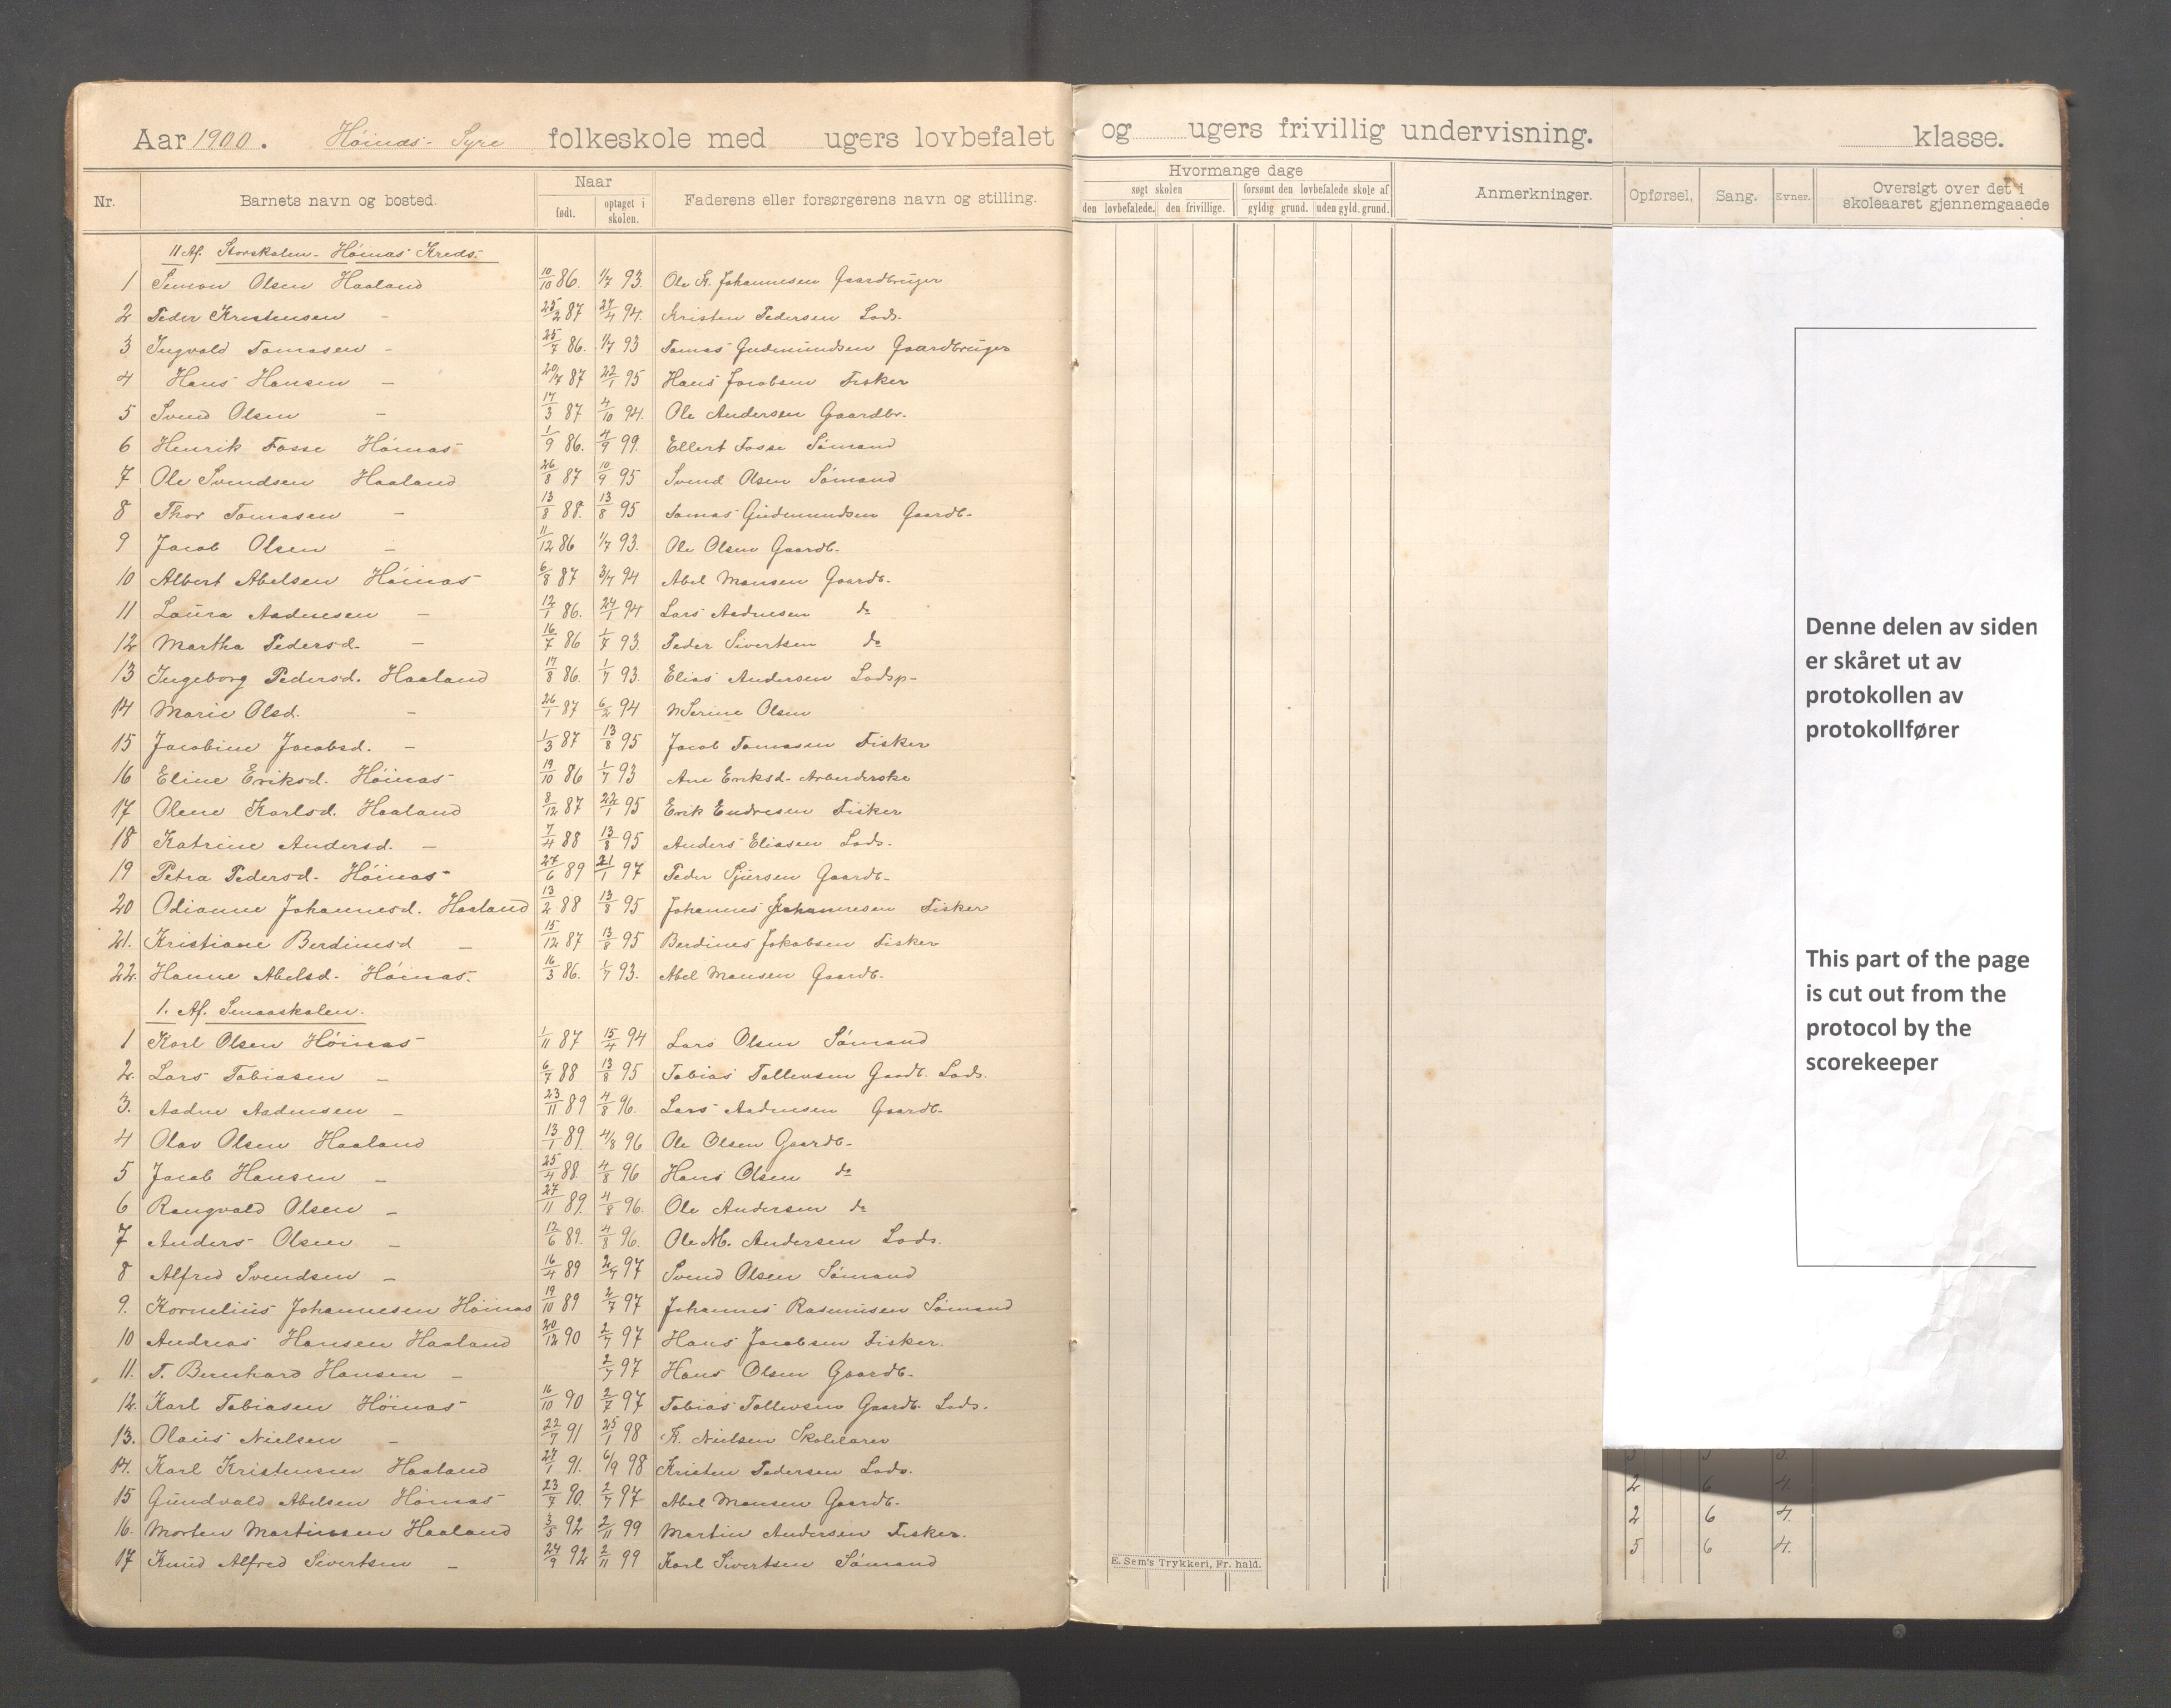 Aar 1900. Höinæs- Syre folkeskole med ugers lovbefalet og ugers frivillig undervisning. klasse.
Nr. Barnets navn og bosted. Naar født. optaget i skolen. Faderens eller forsørgerens navn og stilling. Hvormange dage søgt skolen den lovbefalede. den frivillige. forsømt den lovbefalede skole af gyldig grund. uden gyld. grund. Anmerkninger. Opførsel, Sang. Evner. Oversigt over det i skoleaaret gjennemgaaede
II Af. Storskolen - Höinæs Kreds.
1 Simon Olsen Haaland 10/10 86. 1/7 93. Ole K. Johannesen Gaardbruger
2 Peder Kristensen - 25/2 87 27/4 94. Kristen Pedersen Lods.
3 Ingvald Tomasen - 25/7 86. 1/7 93 Tomas Gudmundsen Gaardbruger
4 Hans Hansen - 20/7 87 22/1 95 Hans Jacobsen Fisker
5 Svend Olsen - 17/3 87 4/10 94. Ole Andersen Gaardbr.
6 Henrik Fosse Höinæs 1/9 86. 4/9 99. Ellert Fosse Sömand
7 Ole Svendsen Haaland 26/8 87 10/9 95 Svend Olsen Sömand
8 Thor Tomasen - 13/8 88. 13/8 95 Tomas Gudmundsen Gaardb.
9 Jacob Olsen - 11/12 86 1/7 93. Ole Olsen Gaardb.
10 Albert Abelsen Höinæs 6/8 87 3/7 94 Abel Monsen Gaardb.
11 Laura Aadnesen - 12/1 86. 24/1 94 Lars Aadnesen do
12 Martha Pedersd. - 16/7 86 1/7 93. Peder Sivertsen do
13 Ingeborg Pedersd. Haaland 17/8 86. 1/7 93. Elias Andersen Lodsp.
14 Marie Olsd. - 26/1 87 6/2 94 Serine Olsen
15 Jacobine Jacobsd. - 1/3 87 13/8 95 Jacob Tomasen Fisker
16 Eline Eriksd. Höinæs 19/10 86 1/7 93 Ane Eriksd. Arbeiderske
17 Olene Karlsd. Haaland 8/12 87 22/1 95 Erik Endresen Fisker
18 Katrine Andersd. - 7/4 88 13/8 95 Anders Eliasen Lods.
19 Petra Pedersd. Höinæs 27/6 89 21/1 97 Peder Sjursen Gaardb.
20 Odianne Johannesd. Haaland 13/2 88 13/8 95 Johannes Johannesen Fisker
21. Kristiane Berdinesd - 15/12 87 13/8 95 Berdines Jakobsen Fisker
22. Hanne Abelsd. Höinæs. 16/3 86. 1/7 93. Abel Monsen Gaardb.
1. Af. Smaaskolen.
1 Karl Olsen Höinæs 1/11 87 15/4 94 Lars Olsen Sömand
2. Lars Tobiasen - 6/7 88 13/8 95 Tobias Tollevsen Gaardb. Lods.
3. Aadne Aadnesen - 23/11 89 4/8 96. Lars Aadnesen Gaardb.
4 Olav Olsen Haaland 13/1 89. 4/8 96 Ole Olsen Gaardb.
5 Jacob Hansen - 25/4 88. 4/8 96 Hans Olsen do
6 Rangvald Olsen - 27/11 89. 4/8 96. Ole Andersen do
7 Anders Olsen - 12/6 89. 4/8 96. Ole M. Andersen Lods.
8 Alfred Svendsen - 16/4 89 2/7 97 Svend Olsen Sömand
9. Kornelius Johannesen Höinæs 19/10 89 2/7 97 Johannes Rasmusen Sömand
10 Andreas Hansen Haaland 20/12 90 2/7 97 Hans Jacobsen Fisker.
11. T. Bernhard Hansen - 2/7 97 Hans Olsen Gaardb.
12. Karl Tobiasen Höinæs 16/10 90 2/7 97 Tobias Tollevsen Gaardb. Lods.
13. Olaus Nielsen - 22/7 91 25/1 98 K. Nielsen Skolelærer
14. Karl Kristensen Haaland 27/1 91. 6/9 98 Kristen Pedersen Lods.
15 Gundvald Abelsen Höinæs 23/7 90. 2/7 97 Abel Monsen Gaardb. 2 6 4.
16. Morten Martinsen Haaland 3/5 92 2/11 99 Martin Andersen Fisker. 2 6 4.
17 Knud Alfred Sivertsen - 24/9 92 2/11 99 Karl Sivertsen Sömand 5 6 4.
E. Sem's Trykkeri, Fr. hald.
Denne delen av siden
er skåret ut av
protokollen av
protokollfører
This part of the page
is cut out from the
protocol by the
scorekeeper